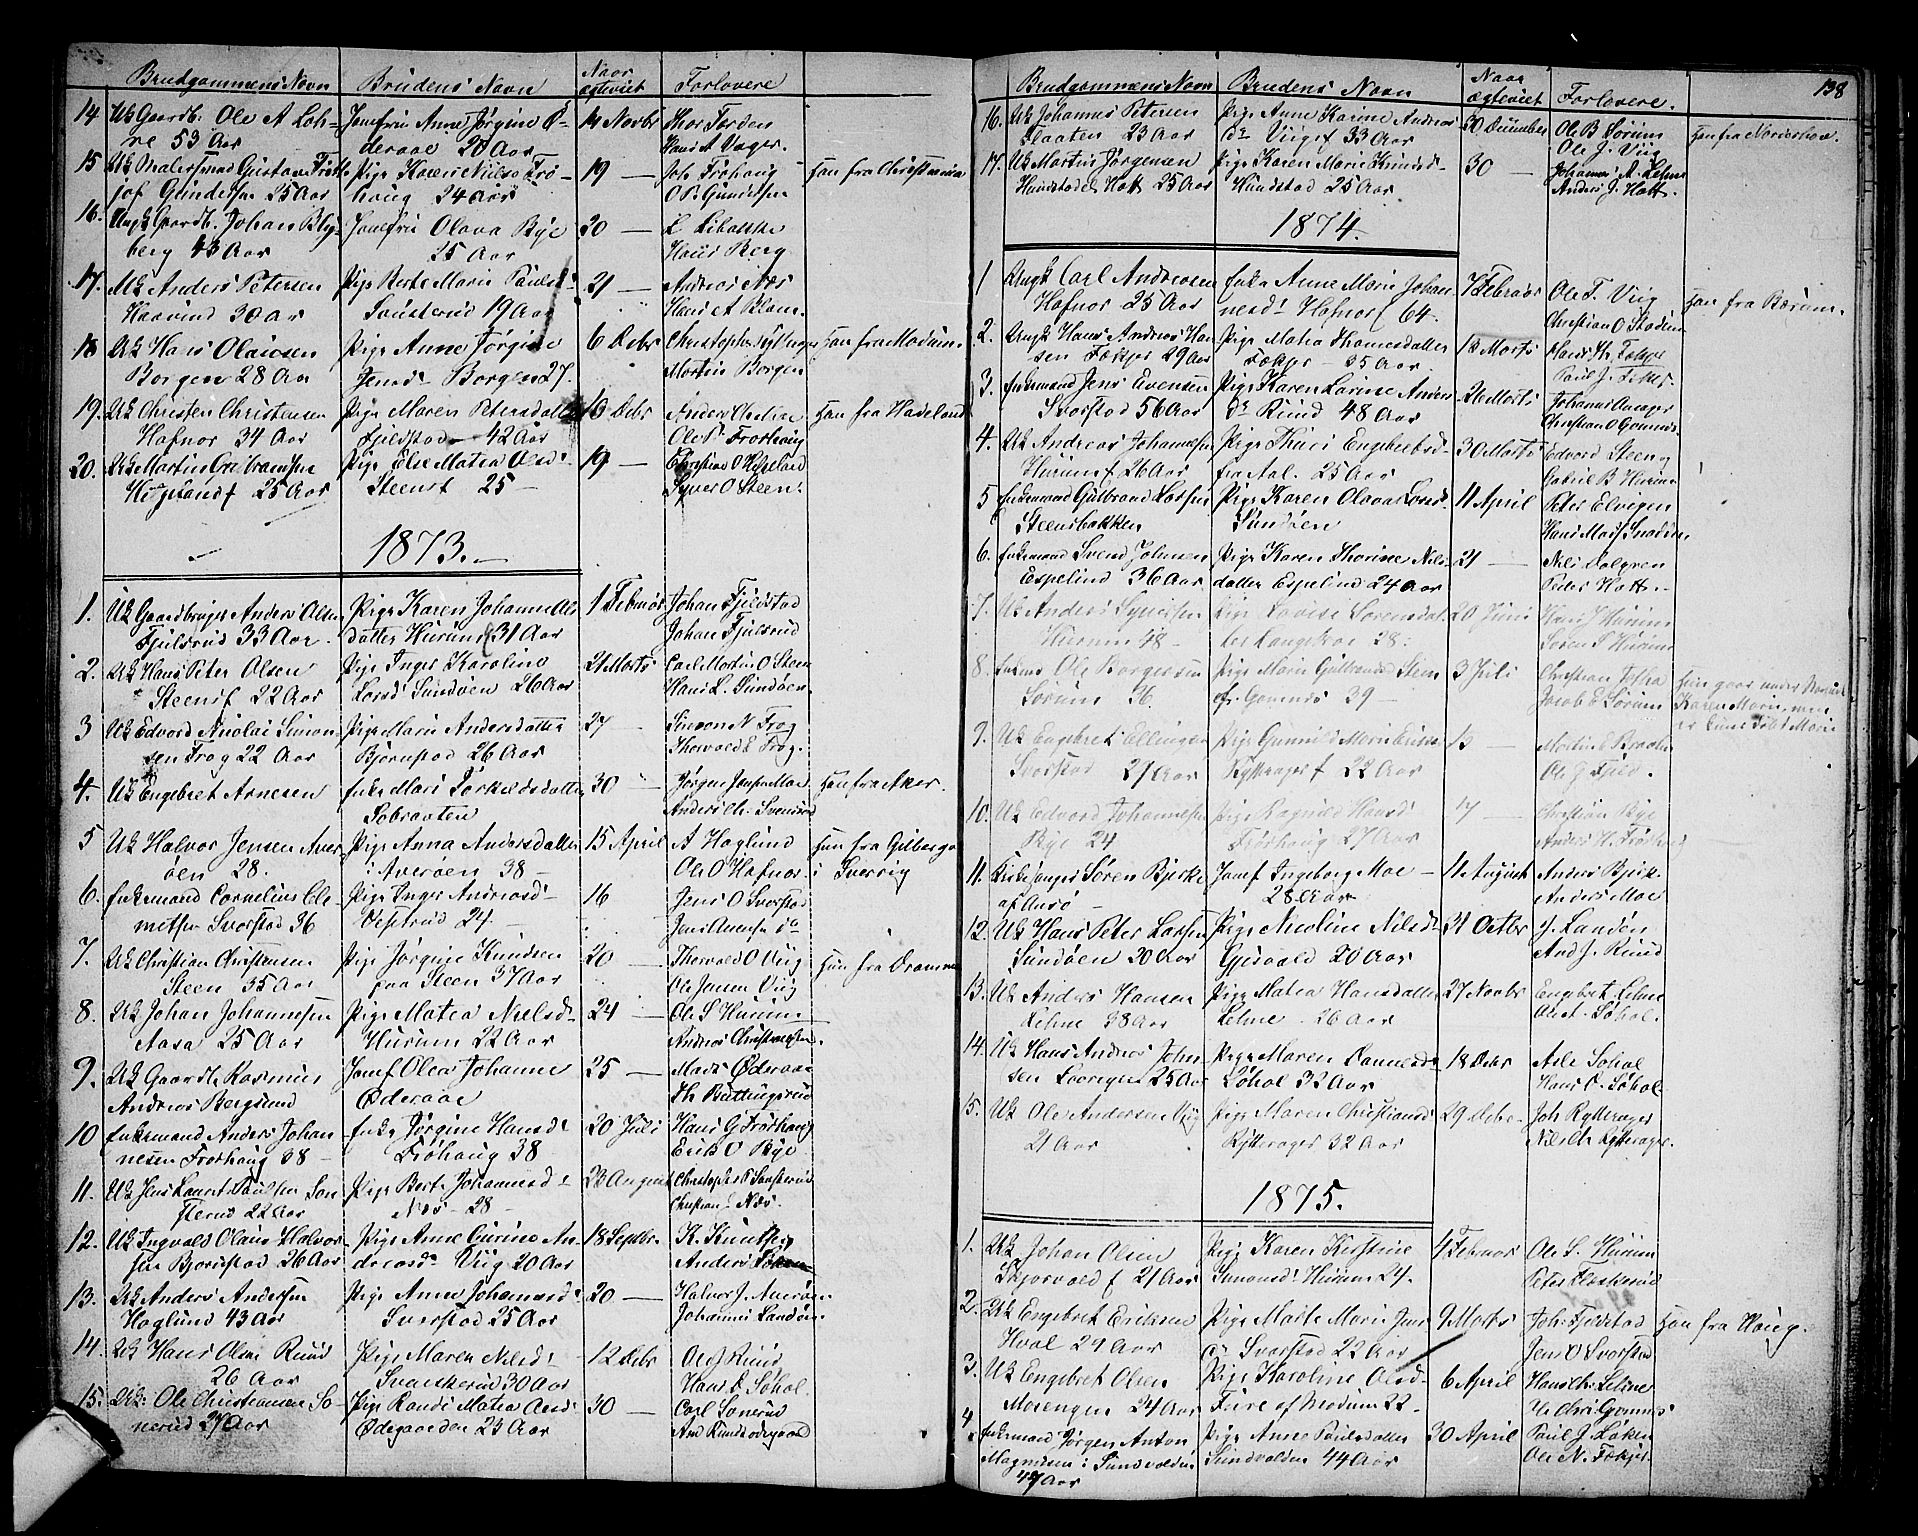 Brudgommens Navn
Brudens Navn
Naar ægteviet
Forlovere
14 Uk Gaardb. Ole A Loh-
ne 53 Aar
Jomfru Anne Jørgine Ø-
deraae 20 Aar
14 Novbr
Thor Torden
Hans A Vager.
15 Uk Malersvend Gustav
Gundersen 25 Aar
Pige Karen Nielse Frø-
houg 24 Aar
19 —
Joh Frøhaug
O B Gundersen
Han fra Christiania
16. Ungk Gaardb. Johan Bly-
berg 43 Aar
Jomfru Olava Bye
25 Aar
20 —
Hans Berg
17. Uk Anders Petersen
30 Aar
Pige Berte Marie Paulsd-
Sønsterud 19 Aar
21 —
Andreas Næs
Hans A Blom.
18 Uk Hans Olaiosen
Borgen 28 Aar
Pige Anne Jørgine
Jensd- Borgen 27.
6 Debr
Christopher
Martin Borgen
Han fra Modum.
19. Uk Christen Christensen
Hafnor 34 Aar
Pige Maren Petersdatter
Fjeldstad 42 Aar
13 Debr
Ole P. Frorhaug
Han fra Hadeland
20. Uk Martin
25 Aar
Pige Else Matea Olsd-
Steensf 25 —
19 —
Christian O
Syver O Steen.
1873.
1. Uk Gaardbruger Anders Olsen
Fjulsrud 33 Aar.
Pige Karen Johanne Ols
datter Hurum 31 Aar
1 Februar
Johan Fjeldstad
Johan Fjulsrud
2. Uk Hans Peter Olsen
Steensf 22 Aar
Pige Inger Karoline
Larsd- Sundøen 26 Aar
21 Marts
Carl Martin O Steen
Hans L. Sundøen.
3 Uk Edvard Nicolai Simon-
sen Frog 22 Aar
Pige Marie Andersdatter
Bjørnstad 26 Aar
27 —
Simon N Frog
Thorvald E Frog.
4. Uk Engebret Arnesen
Enke Mari Torkildsdatter
Sobraaten
30 "
Jørgen Jensen Moe
Anders Ch. Svensrud
Han fra Aker.
5 Uk Halvor Jensen Aver-
øen 28.
Pige Anna Andersdatter
i Averøen 38 —
15 April
A Haglund
Ole O Hafnor.
Hun fra Gilberga
i Sverrig
6. Enkemand Cornelius Cle-
metsen Svorstad 36
Pige Inger Andreasd-
Vestrud 24 —
16
Jens O Svorstad
Jens Avensen do
7. Uk Christian Christensen
Steen 35 Aar
Pige Jørgine Knudsen
paa Steen 37 Aar
20 —
Thorvald O Viig
Ole Jensen Viig
Hun fra Drammen
8. Uk Johan Johannesen
Aasa 25 Aar
Pige Matea Nielsd-
Hurum 22 Aar
24 —
Ole S Hurum
Andreas Christiansen.
9. Uk Gaardb. Rasmus
Andreas Bergsund
Jomf Olea Johanne
Øderaae
25 —
Mads Øderaae
Th Buttingsrud
10 Enkemand Anders Johan
nesen Frorhaug 38 —
Enke Jørgine Hansd-
Frøhaug 38
20 Juli
Hans G Frøhaug
Erik O Bye
11. Uk Jens Lauret Paulsen Søn
sterud 22 Aar
Pige Berte Johannesd-
Næs - 28 -
23 August
Christopher P Sønsterud
Christian Næs.
12. Uk Ingvald Olaus Halvor-
sen Bjørnstad 26 Aar
Pige Anne Gurine An-
dreasd- Viig 20 Aar
18 Septbr.
K. Knutsen
Anders
13. Uk Anders Andersen
Haglund 43 Aar
Pige Anne Johannesd-
Svorstad 25 Aar
20 —
Halvor J. Averøen
Johannes Sundøen.
14. Uk Hans Olsen Ruud
26 Aar
Pige Maren Nilsd-
Svarterud 30 Aar
12 Debr
Ole J Ruud
Hans D Søhol.
15. Uk: Ole Christiansen So-
nerud 27 Aar
Pige Randi Matea And
Ødegaarden 23 Aar
30 —
Carl Sonerud
And Knudsødegaard
138
Brudgommens Navn
Brudens Navn
Naar ægteviet
Forlovere.
16. Uk Johannes Petersen
Slaaten 23 Aar
Pige Anne Karine Andreas
dr Viigf 33 Aar
30 December
Ole B Sørum
Ole J. Viig
Han fra Norderhov.
17. Uk Martin Jørgensen
Hundstadei Hott 25 Aar
Pige Karen Marie Knudsd-
Hundstad 25 Aar
30 —
Johannes A. Lehne
Anders J. Hott.
1874.
1 Ungk Carl Andresen
Hafnor 25 Aar
Enke Anne Marie Johan-
nesd- Hafnorf 64.
Februar
Ole T. Viig
Christian O
Han fra Bærum.
2. Ungk Hans Andreas Han
sen Fækjer 29 Aar
Pige Mathea Thomesdatter
Fækjer - 35 Aar.
13 Marts
Hans Ch. Fækjer
Paul J. Fækjer.
3. Enkemand Jens Evensen
Svorstad 56 Aar
Pige Karen Larine Anders
dr Ruud 48 Aar
26 Marts
Johannes
Christian O Gomnæs
4. Uk Andreas Johannesen
Hurumf 26 Aar
Pige Thuri Engebretsd-
fra Aal. 25 Aar
30 Marts
Edvard Steen
Gabriel B Hurum
5 Enkemand Gulbrand Larsen
Steensbakken
Pige Karen Olava Larsd-
Sundøen
11 April
Peter Elvigen
Hans
6. Enkemand Svend Johnsen
Espelund 36 Aar
Pige Karen Thorine Nils-
datter Espelund 24 Aar
21 —
Nils Dalgren
Peder Hott —
7. Uk Anders Syversen
Hurum 48 —
Lovise Sørensdat-
ter 28:
20 Juni
Hans J Hurum
Søren S Hurum
8. Enkem Ole Borgersen
Sørum 36.
Pige Marie Gulbrandsd Steen
af Gomnæs 29 —
3 Juli
Christian
Jacob E Sørum
Hun gaar under Navnet
Karen Marie, men
er Marie
9. Uk Engebret Ellingsen
Svorstad 27 Aar
Pige Gunnild Marie Eriks
Rytteragerf 22 Aar
13 —
Martin E Braaten
Ole G Fjeld.
10. Uk Edvard Johannesen
Bye 24
Pige Ragnild Hansd-
Frøhaug 27 Aar
17 —
Christian Bye
Anders H. Frøhaug
11. Kirkesanger Søren Bjerke
af Ansø —
Jomf Ingeborg Moe —
28 Aar
11 August
Anders Bjerke.
Anders Moe
12. Uk Hans Peter Larsen
Sundøen 30 Aar
Pige Nicoline Nilsd-
Gjesvold 20 Aar
31 Octbr
J. Sundøen
And J. Ruud
13. Uk Anders Hansen
Lehne 38 Aar
Pige Matea Hansdatter
Lehne - 26 Aar
27 Novbr
Engebret Lehne
Ole A. Søhol.
14. Uk Hans Andreas John
sen 25 Aar
Pige Maren
Søhol 32 Aar
18 Debr
Asle Sohol
Hans D. Søhol.
15. Uk Ole Andersen Viig
21 Aar
Pige Maren Christiansd-
Rytterager 32 Aar
29 Debr.
Joh Rytterager
Nils Ch Rytterager.
1875.
1. Uk Johan Olsen
Skjorvold f 21 Aar
Pige Karen Kirstine
Simonsd- Hurum 24.
4 Februar
Ole S. Hurum
Peter
2. Uk Engebret Eriksen
Hval 29 Aar
Pige Marte Marie Jens
dr Svorstad 22 Aar
9 Marts
Joh. Fjeldstad
Jens O Svorstad
Han fra Houg.
3. Uk Engebret Olsen
Morengen 24 Aar
Pige Karoline Olsd-
Fure af Modum 22 -
6 April
Hans Ch. Lehne
Gomnæs
4. Enkemand Jørgen Anton
Magnusen i Sundvolden
47 Aar
Pige Anne Paulsdatter
Sundvolden 44 Aar
30 April
Paul J. Løken
Ole N. Fækjer.